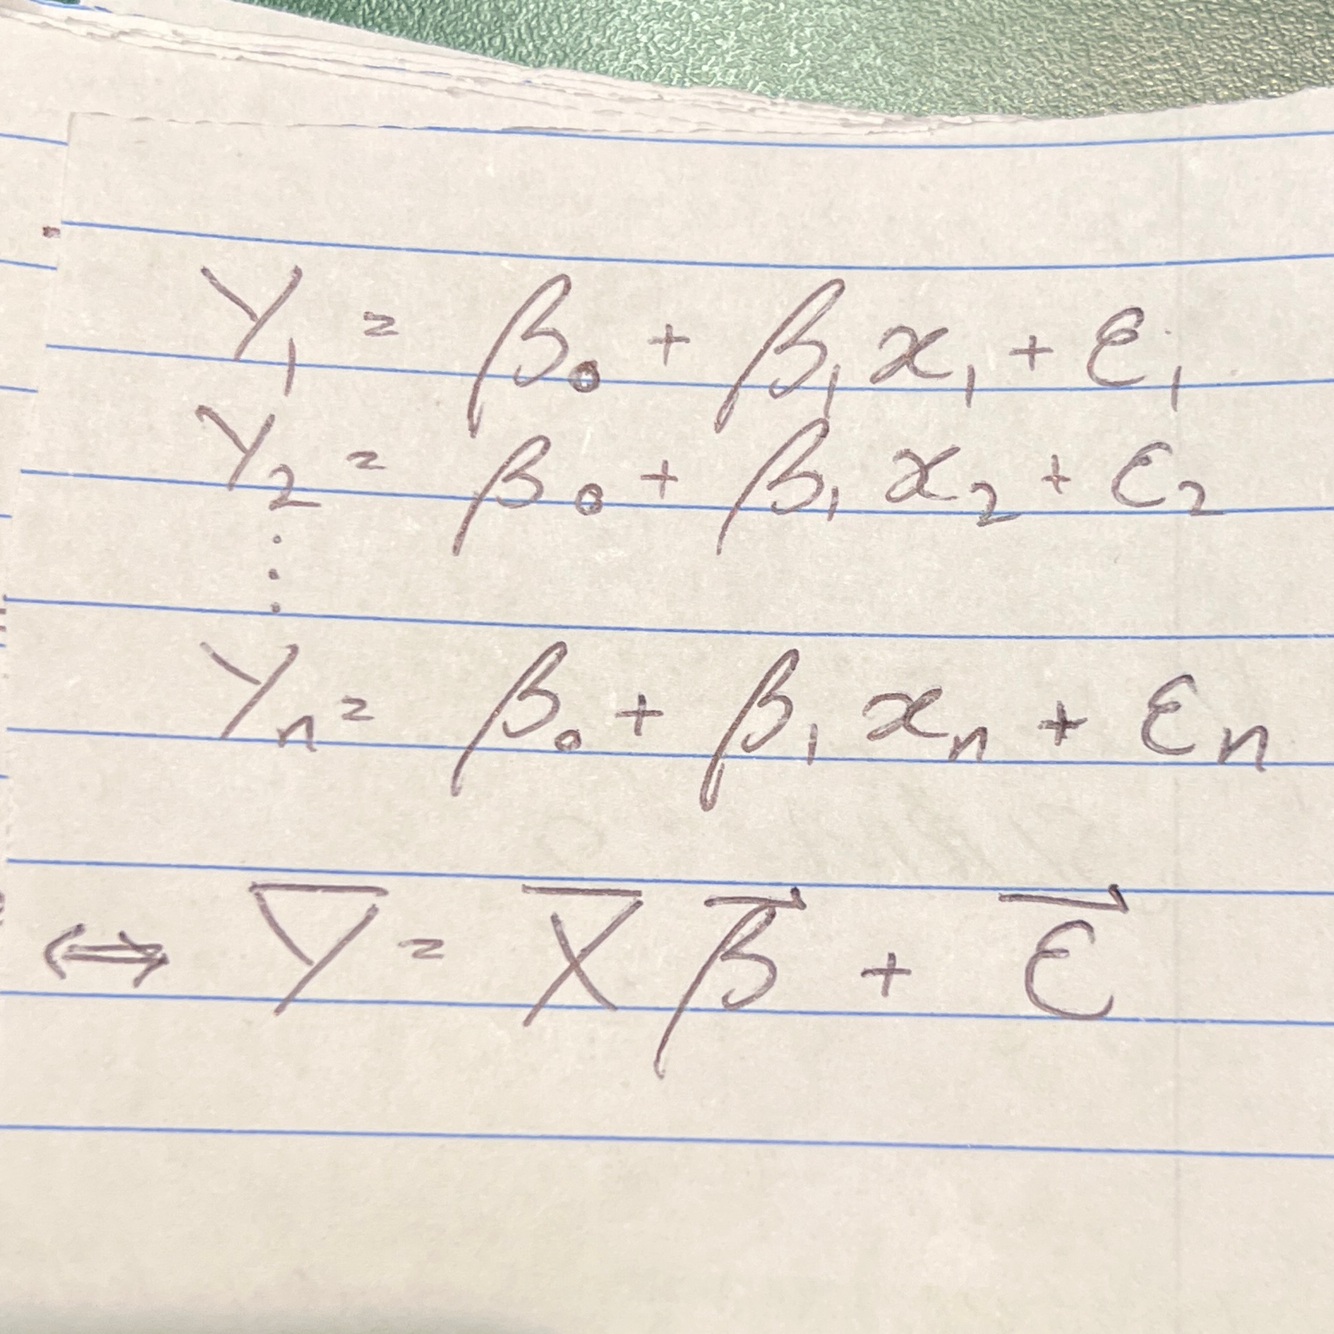 Y₁ = β₀ + β₁ x₁ + ε₁
Y₂ = β₀ + β₁ x₂ + ε₂
⋮
Yₙ = β₀ + β₁ xₙ + εₙ
⇔ Y̅ = X̅ β⃗ + ε⃗